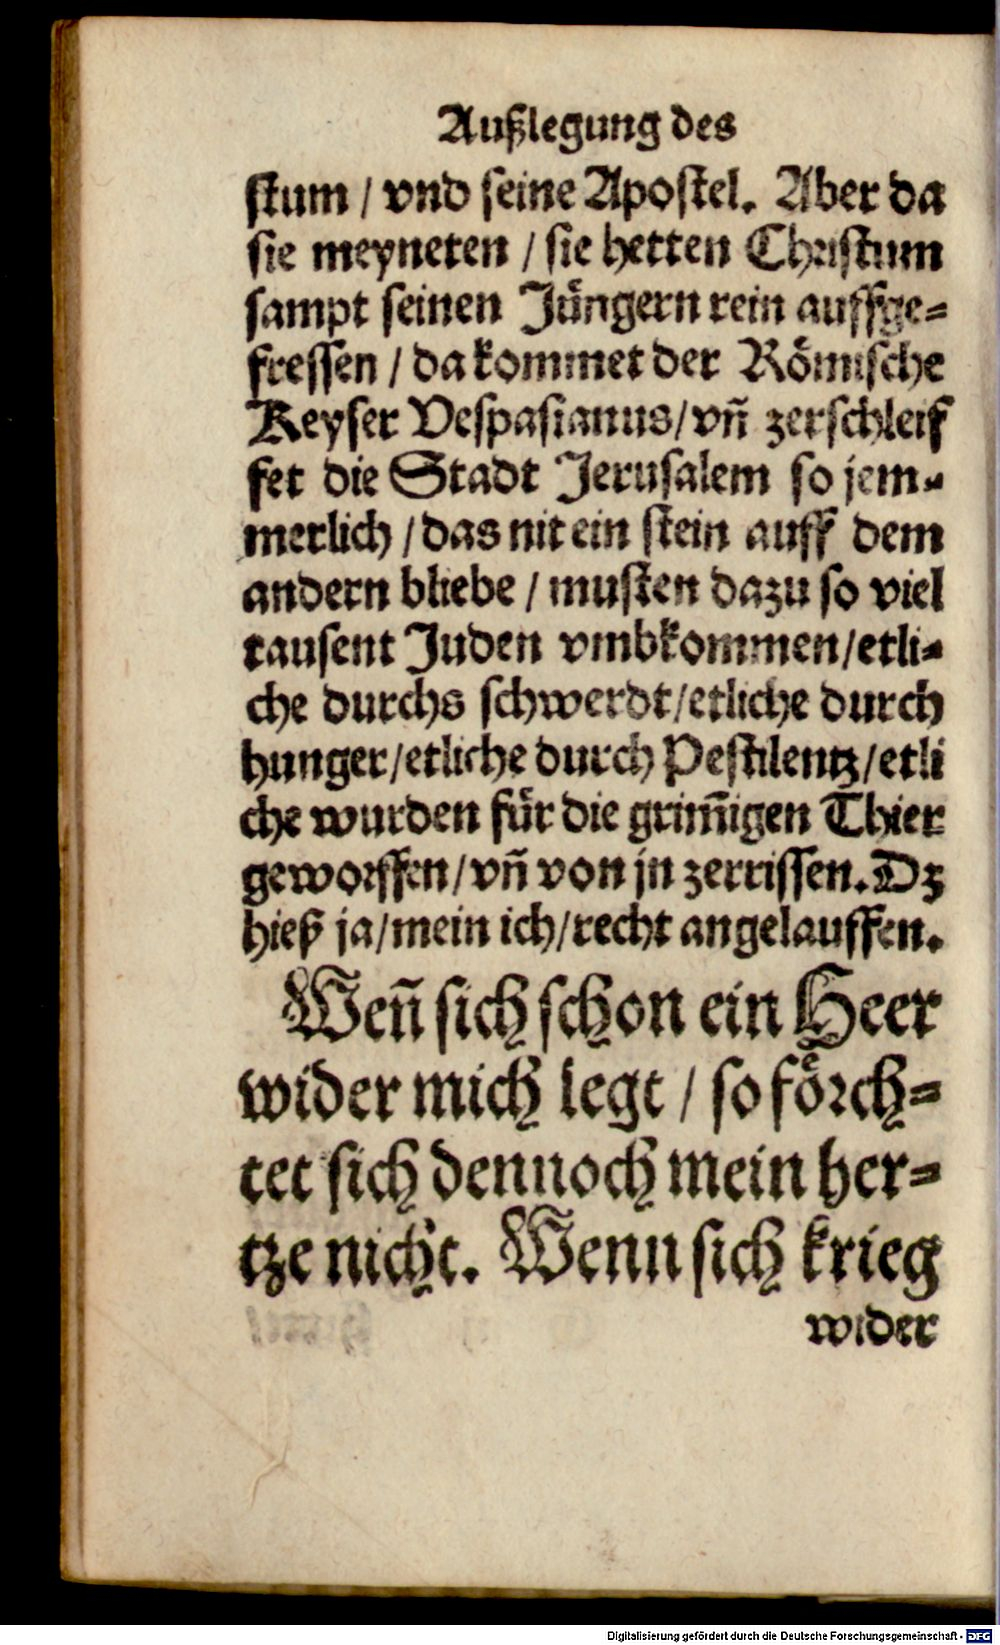 Außlegung des
stum / vnd seine Apostel. Aber da
sie meyneten / sie hetten Christum
sampt seinen Jüngern rein auffge-
fressen / da kommet der Römische
Keyser Vespasianus/ vñ zerschleif
fet die Stadt Jerusalem so jem-
merlich / das nit ein stein auff dem
andern bliebe / musten dazu so viel
tausent Juden vmbkommen/etli-
che durchs schwerdt/etliche durch
hunger/etliche durch Pestilentz/etli
che wurden für die grim̃igen Thier
geworffen/vñ von jn zerrissen. Dz
hieß ja/mein ich/recht angelauffen.
Weñ sich schon ein Heer
wider mich legt / so förch-
tet sich dennoch mein her-
tze nicht. Wenn sich krieg
wider
Digitalisierung gefördert durch die Deutsche Forschungsgemeinschaft - DFG